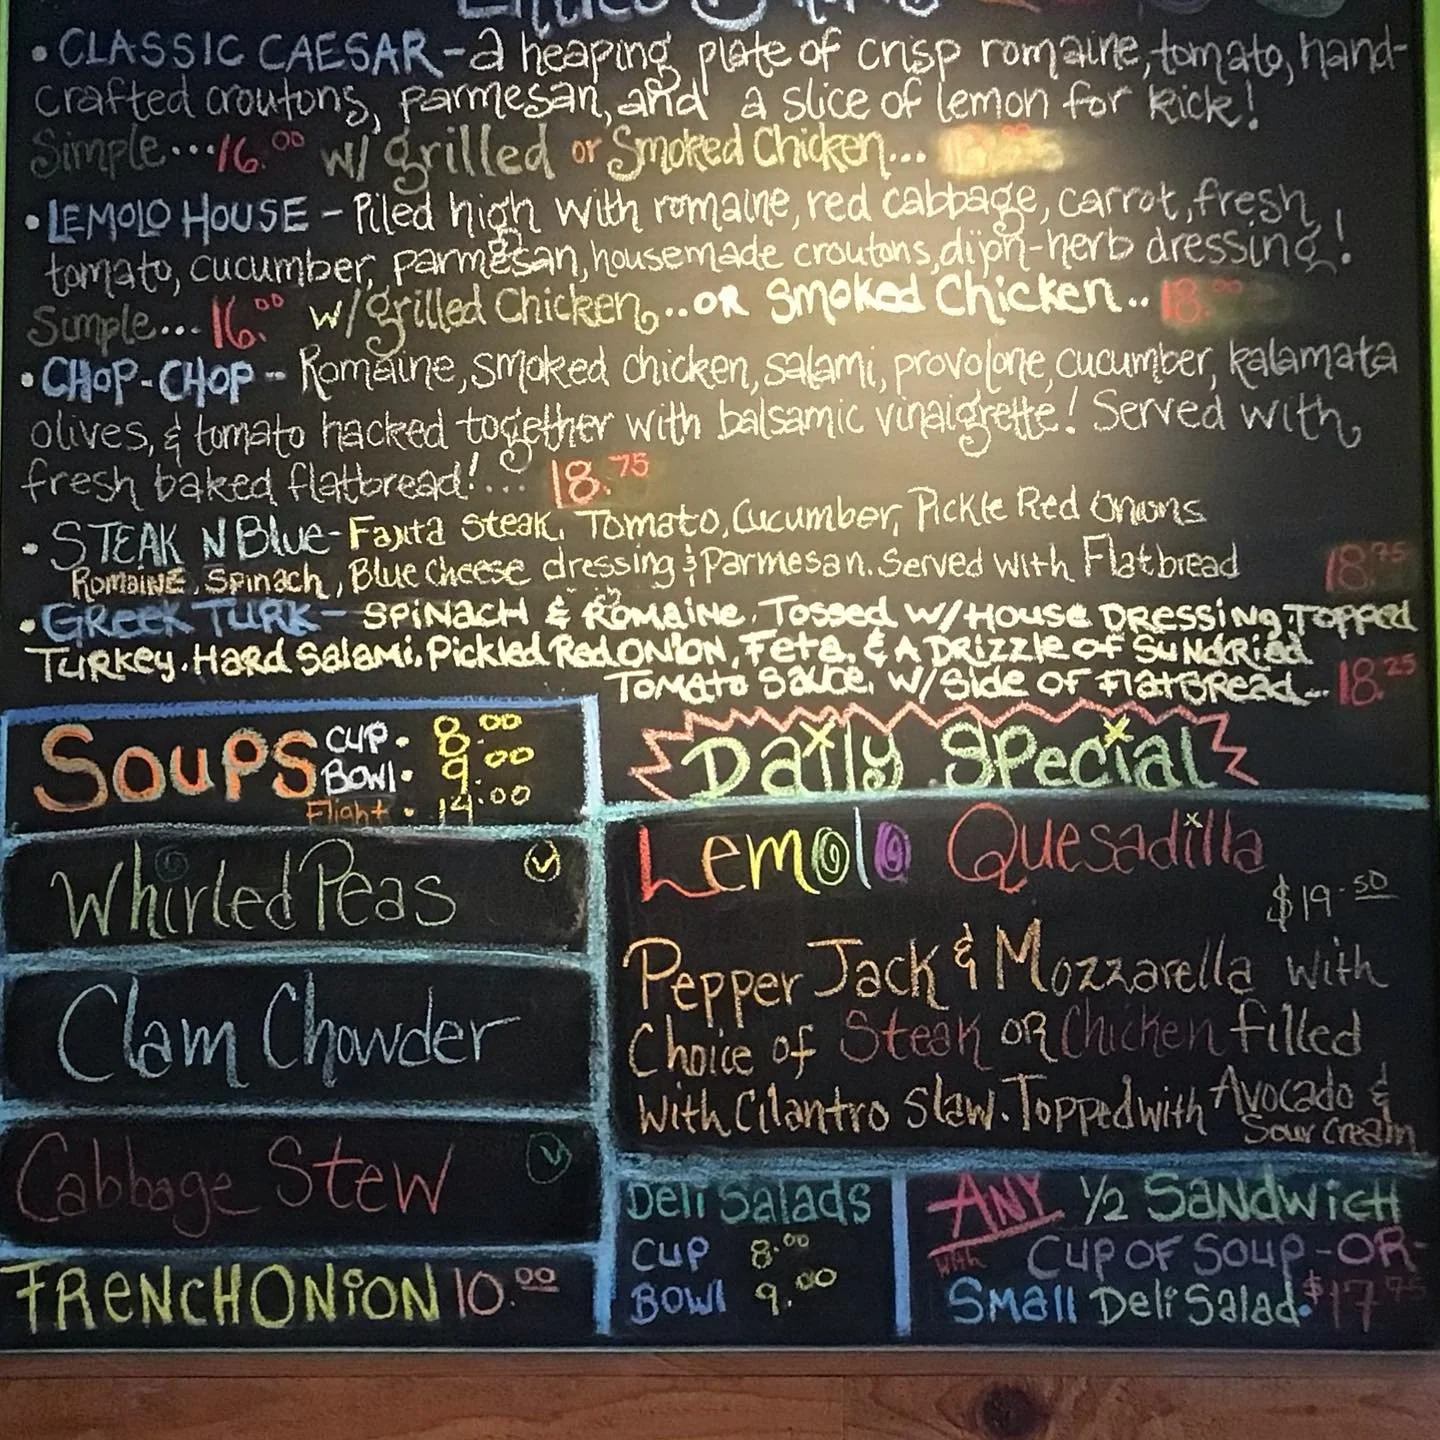 • CLASSIC CAESAR - a heaping plate of crisp romaine, tomato, hand-
crafted croutons, parmesan, and a slice of lemon for kick!
Simple... 16.00 w/ grilled or Smoked Chicken...
• LEMOLO HOUSE - Piled high with romaine, red cabbage, carrot, fresh
tomato, cucumber, parmesan, housemade croutons, dijon-herb dressing!
Simple... 16.00 w/ grilled Chicken... OR Smoked Chicken.. 18.00
• CHOP-CHOP - Romaine, smoked chicken, salami, provolone, cucumber, kalamata
olives, & tomato hacked together with balsamic vinaigrette! Served with
fresh baked flatbread!... 18.75
• STEAK N Blue - Fajita Steak, Tomato, Cucumber, Pickle Red Onions
Romaine, Spinach, Blue Cheese dressing & Parmesan. Served with Flatbread 18.75
• GREEK TURK - SPINACH & ROMAINE, TOSSED W/ HOUSE DRESSING, TOPPED
TURKEY, HARD SALAMI, PICKLED RED ONION, Feta, & A DRIZZLE OF SUNDRIED
TOMATO SAUCE, W/ SIDE OF FLATBREAD... 18.25
SOUPS
CUP • 8.00
BOWL • 9.00
Flight • 14.00
Whirled Peas V
Clam Chowder
Cabbage Stew V
FRENCH ONION 10.00
Daily Special
Lemolo Quesadilla
$19.50
Pepper Jack & Mozzarella with
Choice of Steak OR Chicken filled
with Cilantro Slaw. Topped with Avocado &
Sour Cream
Deli Salads
CUP 8.00
BOWL 9.00
ANY 1/2 SANDWICH
with CUP OF SOUP -OR-
SMALL Deli Salad. $17.75